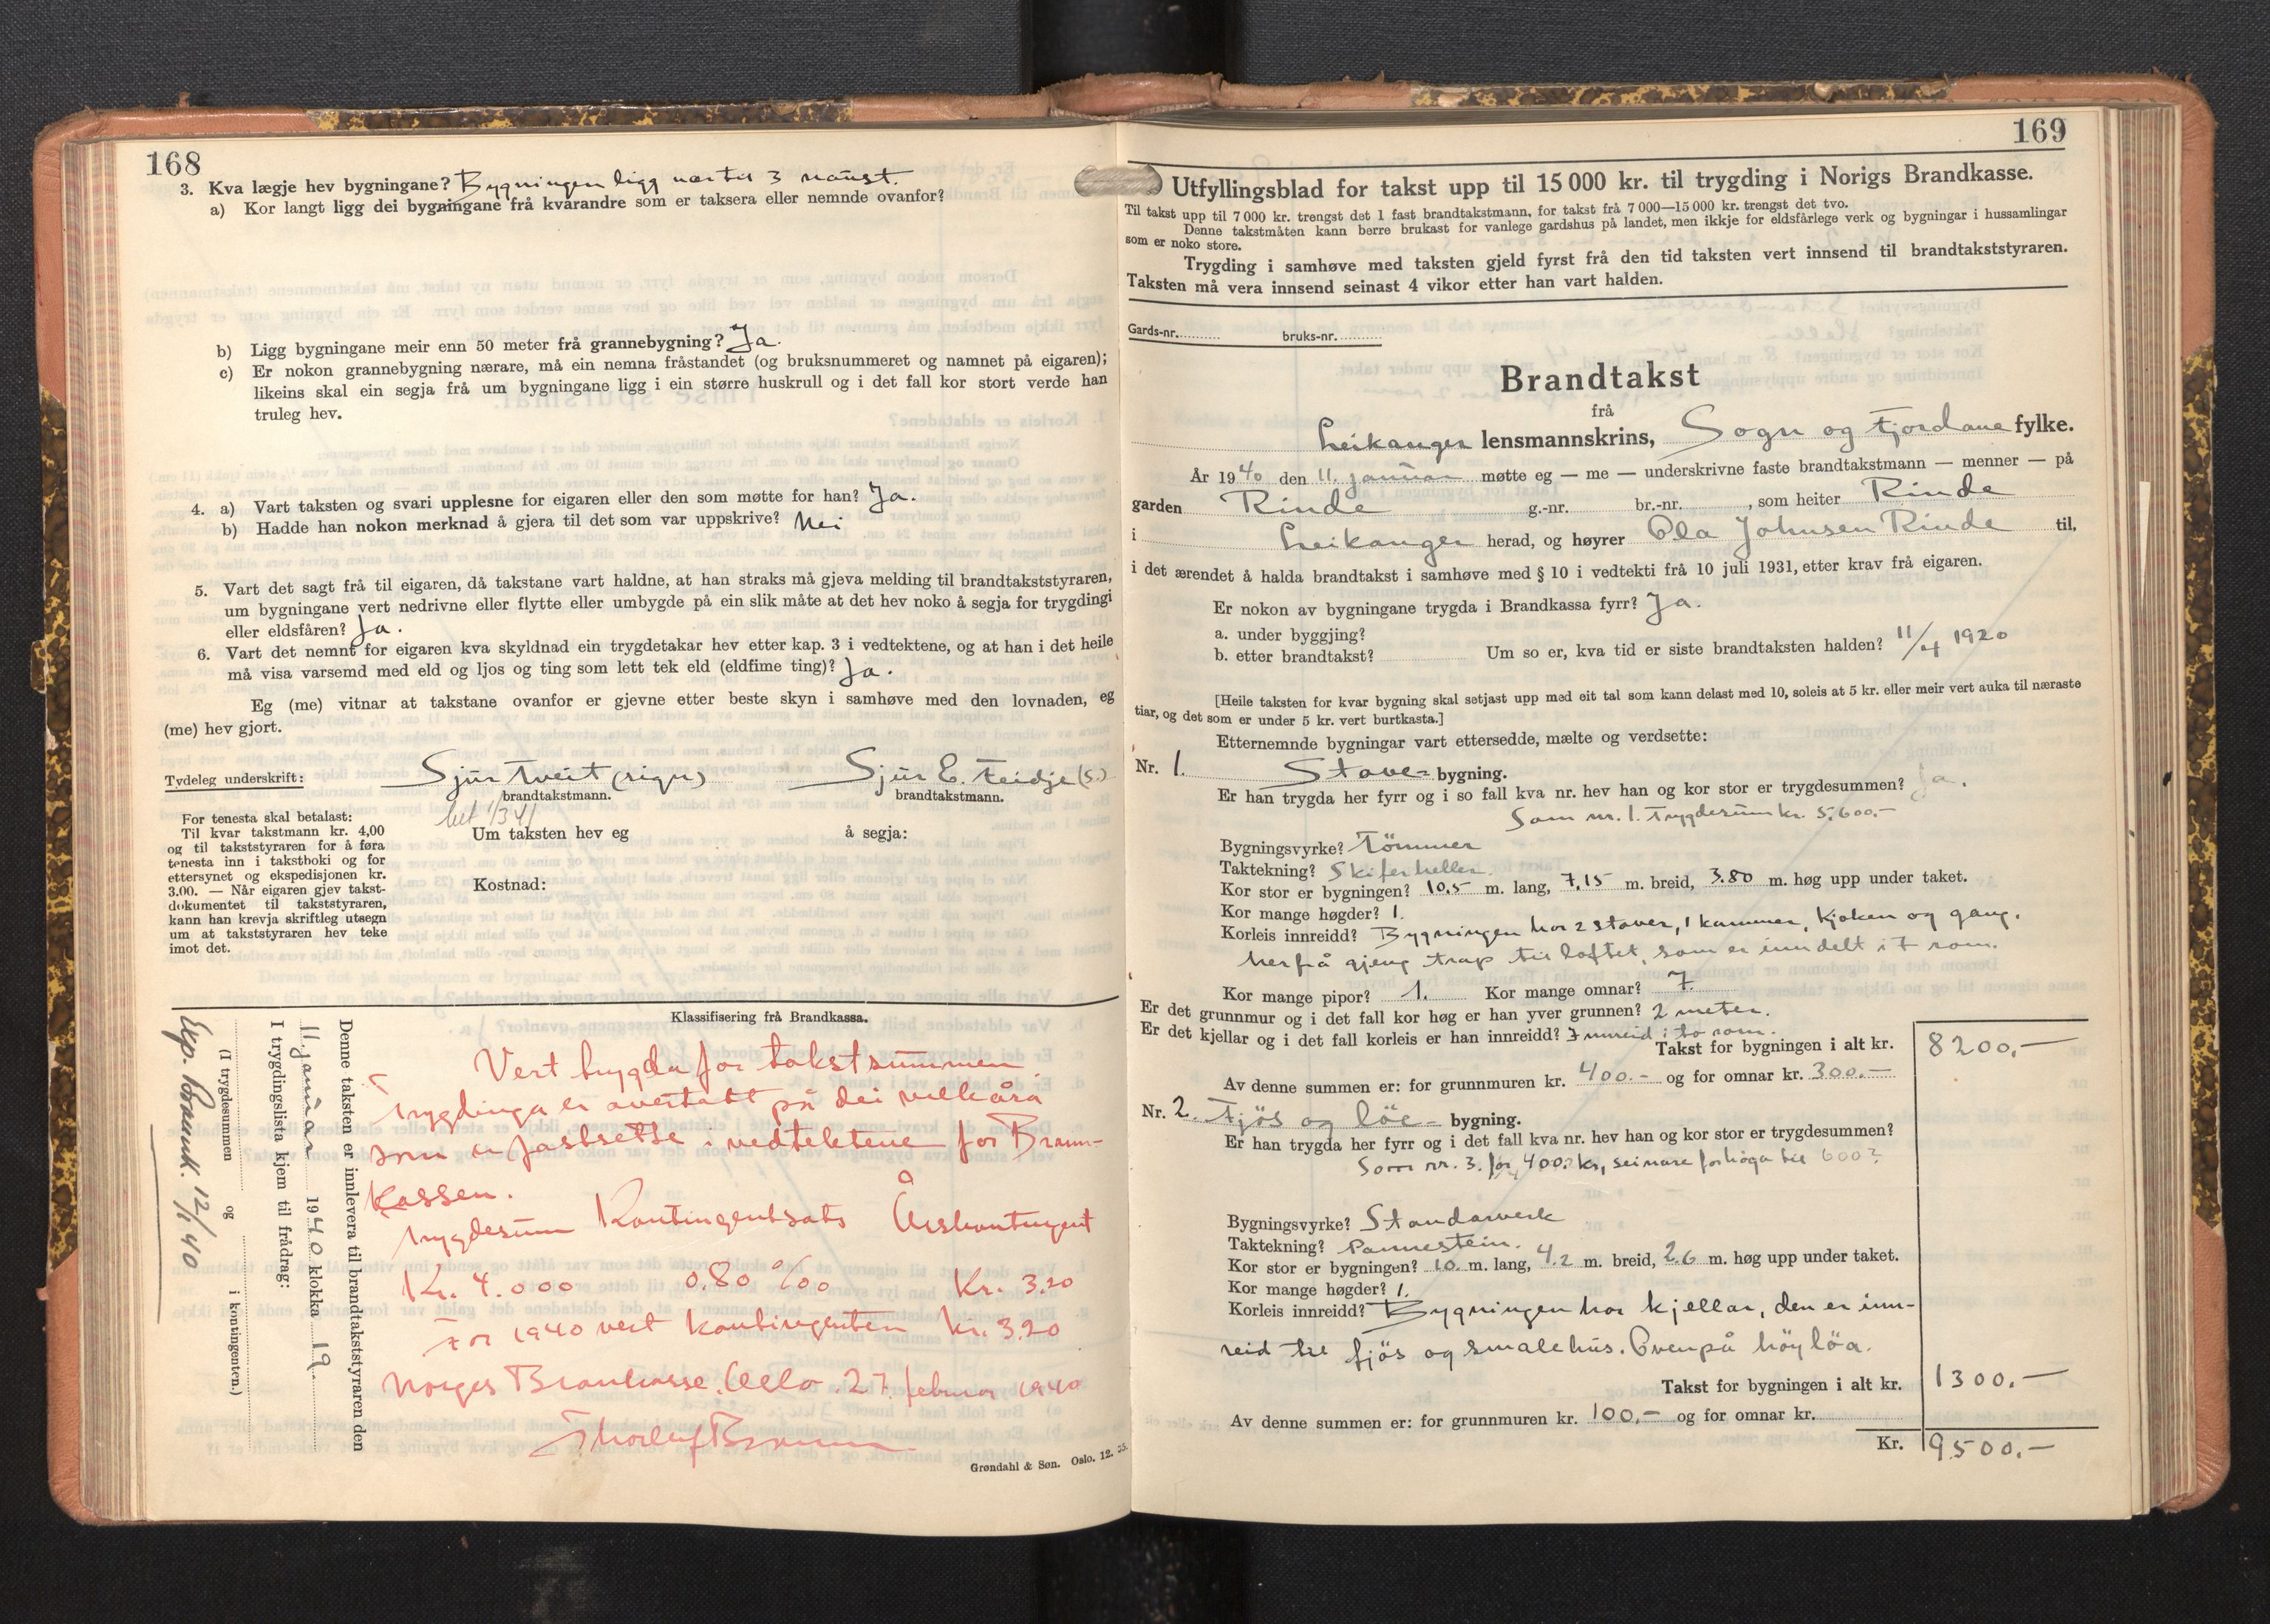 168
3. Kva lægje hev bygningane? Bygningen ligg nær til 3 naust.
a) Kor langt ligg dei bygningane frå kvarandre som er taksera eller nemnde ovanfor?
b) Ligg bygningane meir enn 50 meter frå grannebygning? Ja.
c) Er nokon grannebygning nærare, må ein nemna fråstandet (og bruksnummeret og namnet på eigaren);
likeins skal ein segja frå um bygningane ligg i ein større huskrull og i det fall kor stort verde han
truleg hev.
4. a) Vart taksten og svari upplesne for eigaren eller den som møtte for han? Ja.
b) Hadde han nokon merknad å gjera til det som var uppskrive? Nei
5. Vart det sagt frå til eigaren, då takstane vart haldne, at han straks må gjeva melding til brandtakststyraren,
um bygningane vert nedrivne eller flytte eller umbygde på ein slik måte at det hev noko å segja for trygdingi
eller eldsfåren? Ja.
6. Vart det nemnt for eigaren kva skyldnad ein trygdetakar hev etter kap. 3 i vedtektene, og at han i det heile
må visa varsemd med eld og ljos og ting som lett tek eld (eldfime ting)? Ja.
Eg (me) vitnar at takstane ovanfor er gjevne etter beste skyn i samhøve med den lovnaden, eg
(me) hev gjort.
Tydeleg underskrift: Sjur Tveit (sign) Sjur E. Feidje (s.)
brandtakstmann. brandtakstmann.
For tenesta skal betalast:
Til kvar takstmann kr. 4,00
og til takststyraren for å føra
tenesta inn i takstboki og for
ettersynet og ekspedisjonen kr.
3.00. — Når eigaren gjev takst-
dokumentet til takststyraren,
kann han krevja skriftleg utsegn
um at takststyraren hev teke
imot det.
bet 1/3 41
Um taksten hev eg å segja:
Kostnad:
Klassifisering frå Brandkassa.
Vert trygda for takstsummen.
Trygdinga er overtatt på dei vilkåra
som er fastsette i vedtektene for Brann-
kassen.
Trygdesum Kontingentsats Årskontingent
Kr. 4.000 0.80 ‰ Kr. 3.20
For 1940 vert kontingenten kr. 3.20
Norges Brannkasse. Oslo. 27. februar 1940
Denne taksten er innlevera til brandtakststyraren den
11. januar 1940 klokka 19.
I trygdingslista kjem til frådrag:
(I trygdesummen og i kontingenten.)
Eksp. Brannk. 12/1 40
Grøndahl & Søn. Oslo. 12. 35.
169
Utfyllingsblad for takst upp til 15 000 kr. til trygding i Norigs Brandkasse.
Til takst upp til 7 000 kr. trengst det 1 fast brandtakstmann, for takst frå 7 000—15 000 kr. trengst det tvo.
Denne takstmåten kann berre brukast for vanlege gardshus på landet, men ikkje for eldsfårlege verk og bygningar i hussamlingar
som er noko store.
Trygding i samhøve med taksten gjeld fyrst frå den tid taksten vert innsend til brandtakststyraren.
Taksten må vera innsend seinast 4 vikor etter han vart halden.
Gards-nr. bruks-nr.
Brandtakst
frå
Leikanger lensmannskrins, Sogn og Fjordane fylke.
År 1940 den 11. januar møtte eg — me — underskrivne faste brandtakstmann — menner — på
garden Rinde g.-nr. br.-nr. , som heiter Rinde
i Leikanger herad, og høyrer Ola Johnsen Rinde til,
i det ærendet å halda brandtakst i samhøve med § 10 i vedtekti frå 10 juli 1931, etter krav frå eigaren.
Er nokon av bygningane trygda i Brandkassa fyrr? Ja.
a. under byggjing?
b. etter brandtakst? Um so er, kva tid er siste brandtaksten halden? 11/4 1920
[Heile taksten for kvar bygning skal setjast upp med eit tal som kann delast med 10, soleis at 5 kr. eller meir vert auka til næraste
tiar, og det som er under 5 kr. vert burtkasta.]
Etternemnde bygningar vart ettersedde, mælte og verdsette:
Nr. 1. Stove- bygning.
Er han trygda her fyrr og i so fall kva nr. hev han og kor stor er trygdesummen? Ja.
Som nr. 1. Trygdesum kr. 5.600.-
Bygningsvyrke? Tömmer
Taktekning? Skiferheller.
Kor stor er bygningen? 10.5 m. lang, 7.15 m. breid, 3.80 m. høg upp under taket.
Kor mange høgder? 1.
Korleis innreidd? Bygningen har 2 stover, 1 kammer, kjøken og gang,
herfrå gjeng trap til loftet, som er inndelt i 7 rom.
Kor mange pipor? 1. Kor mange omnar? 7.
Er det grunnmur og i det fall kor høg er han yver grunnen? 2 meter.
Er det kjellar og i det fall korleis er han innreidd? Innreid i to rom.
Takst for bygningen i alt kr. 8200.—
Av denne summen er: for grunnmuren kr. 400.- og for omnar kr. 300.—
Nr. 2. Fjös og löe- bygning.
Er han trygda her fyrr og i det fall kva nr. hev han og kor stor er trygdesummen?
Som nr. 3. for 400. kr, seinare forhøga til 600?
Bygningsvyrke? Standarverk
Taktekning? Pannestein.
Kor stor er bygningen? 10. m. lang, 4.2 m. breid, 2.6 m. høg upp under taket.
Kor mange høgder? 1.
Korleis innreidd? Bygningen har kjellar, den er inn-
reid til fjös og smalehus. Ovenpå höylöa.
Takst for bygningen i alt kr. 1300.—
Av denne summen er: for grunnmuren kr. 100.— og for omnar kr.
Kr. 9500.—